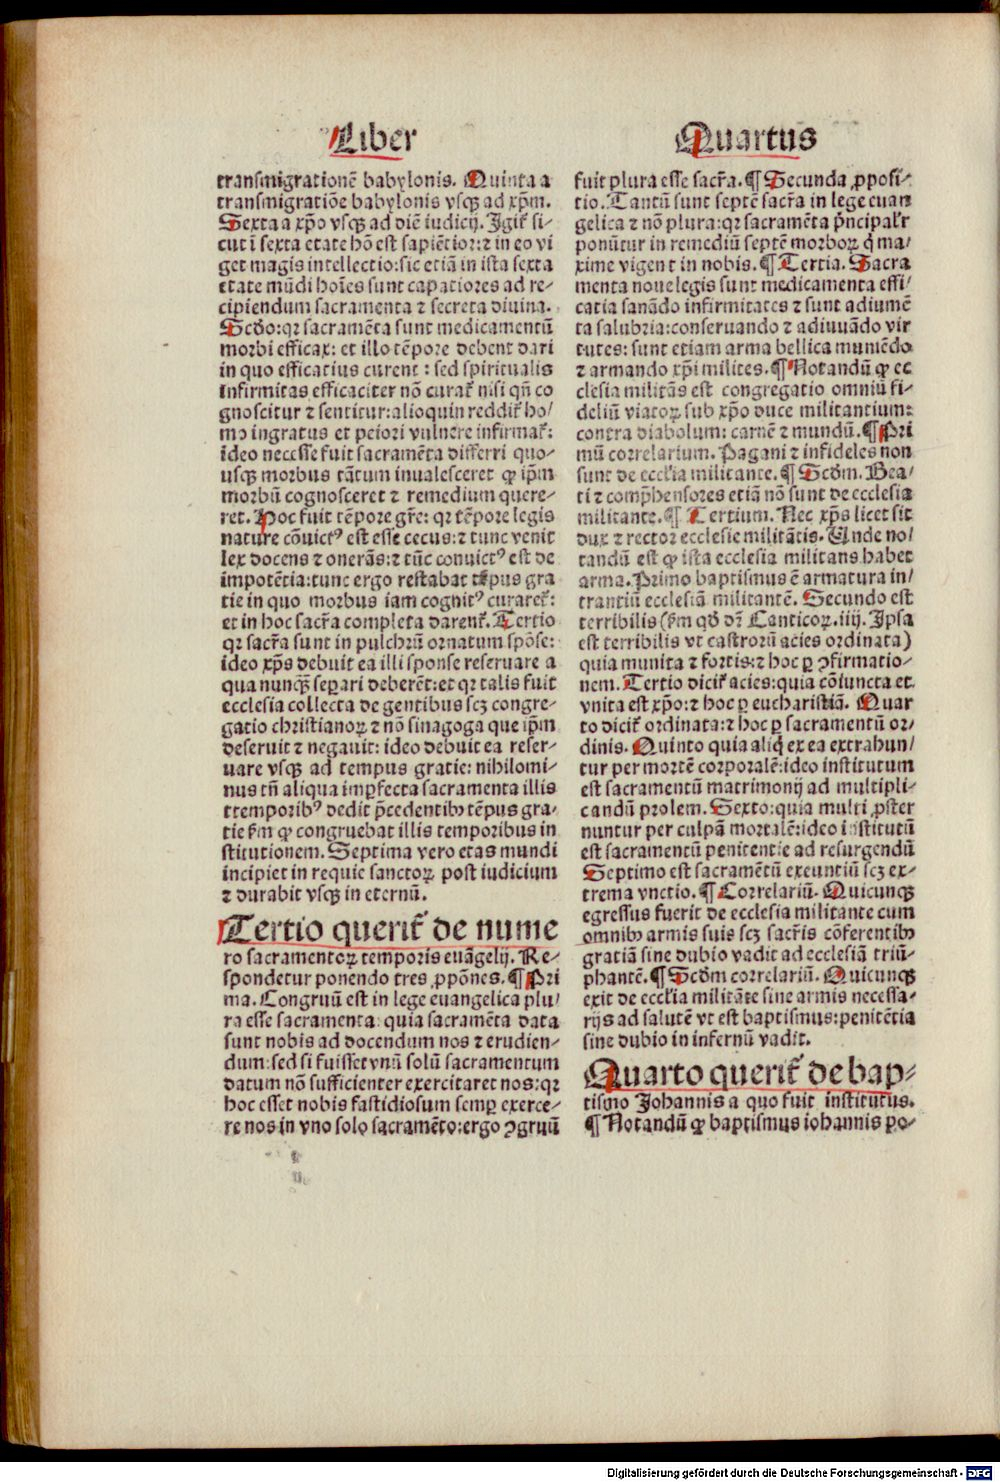 Liber Quartus
transmigrationē babylonis. Quinta a
transmigratiōe babylonis vsqꝫ ad xp̄m.
Sexta a xp̄o vsqꝫ ad diē iudicij. Igit̄ si-
cut ī sexta etate hō est sapiētior: ⁊ in eo vi
get magis intellectio: sic etiā in ista sexta
etate mūdi hoīes sunt capatiores ad re-
cipiendum sacramenta ⁊ secreta diuina.
Scd̄o: qꝛ sacramēta sunt medicamentū
morbi efficax: et illo tēpore debent dari
in quo efficatius curent: sed spiritualis
infirmitas efficaciter nō curat̄ nisi qn̄ co
gnoscitur ⁊ sentitur: alioquin reddit̄ ho/
mo ingratus et peiori vulnere infirmat̄:
ideo necesse fuit sacramēta differri quo-
usqꝫ morbus tātum inualesceret ꝙ ip̄m
morbū cognosceret ⁊ remedium quere-
ret. Hoc fuit tēpore gr̄e: qꝛ tēpore legis
nature cōuictꝰ est esse cecus: ⁊ tunc venit
lex docens ⁊ onerās: ⁊ tūc conuictꝰ est de
impotētia: tunc ergo restabat tēpus gra
tie in quo morbus iam cognitꝰ curaret̄:
et in hoc sacr̄a completa darent̄. Tertio
qꝛ sacr̄a sunt in pulchrū ornatum spōse:
ideo xp̄s debuit ea illi sponse reseruare a
qua nunqꝫ seꝑari deberēt: et qꝛ talis fuit
ecclesia collecta de gentibus scꝫ congre-
gatio christianoꝝ ⁊ nō sinagoga que ip̄m
deseruit ⁊ negauit: ideo debuit ea reser-
uare vsqꝫ ad tempus gratie: nihilomi-
nus tn̄ aliqua imꝑfecta sacramenta illis
ttemporibꝰ dedit p̄cedentibꝫ tēpus gra-
tie ẜm ꝙ congruebat illis temporibus in
stitutionem. Septima vero etas mundi
incipiet in requie sanctoꝝ post iudicium
⁊ durabit vsqꝫ in eternū.
Tertio querit̄ de nume
ro sacramentoꝝ temporis euāgelij. Re-
spondetur ponendo tres ꝓpōnes. ¶ Pri
ma. Congruū est in lege euangelica plu/
ra esse sacramenta: quia sacramēta data
sunt nobis ad docendum nos ⁊ erudien-
dum: sed si fuisset vnū solū sacramentum
datum nō sufficienter exercitaret nos: qꝛ
hoc esset nobis fastidiosum semꝑ exerce-
re nos in vno solo sacramēto: ergo ꝯgruū
fuit plura esse sacr̄a. ¶ Secunda ꝓposi-
tio. Tantū sunt septē sacr̄a in lege euan
gelica ⁊ nō plura: qꝛ sacramēta p̄ncipal'r
ponūtur in remediū septē morboꝝ q̄ ma/
xime vigent in nobis. ¶ Tertia. Sacra
menta noue legis sunt medicamenta effi/
catia sanādo infirmitates ⁊ sunt adiumē
ta salubria: conseruando ⁊ adiuuādo vir
tutes: sunt etiam arma bellica muniēdo
⁊ armando xp̄i milites. ¶ Notandū ꝙ ec
clesia militās est congregatio omniū fi-
deliū viatoꝝ sub xp̄o duce militantium:
contra diabolum: carnē ⁊ mundū. ¶ Pri
mū correlarium. Pagani ⁊ infideles non
sunt de eccl'ia militante. ¶ Scd̄m. Bea/
ti ⁊ comp̄hensores etiā nō sunt de ecclesia
militante. ¶ Tertium. Nec xp̄s licet sit
dux ⁊ rector ecclesie militātis. Unde no/
tandū est ꝙ ista ecclesia militans habet
arma. Primo baptismus ē armatura in/
trantiū ecclesiā militantē. Secundo est
terribilis (ẜm qđ dr̄ Canticoꝝ .iiij. Ipsa
est terribilis vt castrorū acies ordinata)
quia munita ⁊ fortis: ⁊ hoc ꝑ ꝯfirmatio-
nem. Tertio dicit̄ acies: quia cōiuncta et
vnita est xp̄o: ⁊ hoc ꝑ eucharistiā. Quar
to dicit̄ ordinata: ⁊ hoc ꝑ sacramentū or-
dinis. Quinto quia aliq̄ ex ea extrahun/
tur per mortē corporalē: ideo institutum
est sacramentū matrimonij ad multipli-
candū prolem. Sexto: quia multi ꝓster
nuntur per culpā mortalē: ideo institutū
est sacramentū penitentie ad resurgendū
Septimo est sacramētū exeuntiū scꝫ ex-
trema vnctio. ¶ Correlariū. Quicunqꝫ
egressus fuerit de ecclesia militante cum
omnibꝫ armis suis scꝫ sacr̄is cōferentibꝫ
gratiā sine dubio vadit ad ecclesiā triū-
phantē. ¶ Scd̄m correlariū. Quicunqꝫ
exit de eccl'ia militāte sine armis necessa-
rijs ad salutē vt est baptismus: penitētia
sine dubio in infernū vadit.
Quarto querit̄ de bap-
tismo Johannis a quo fuit institutus.
¶ Notandū ꝙ baptismus iohannis po-
Digitalisierung gefördert durch die Deutsche Forschungsgemeinschaft - DFG